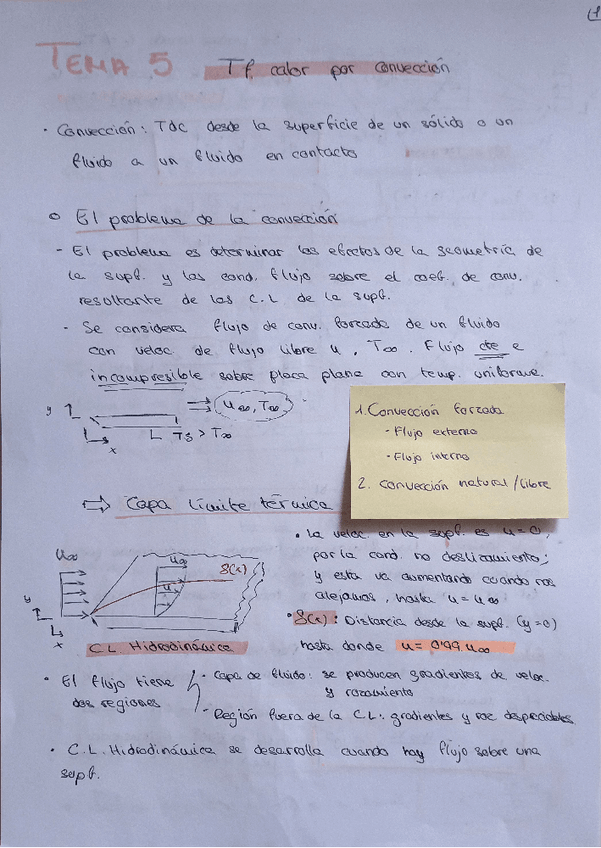 (1
TEMA 5 Tf calor por convección
· Convección: TdC desde la superficie de un sólido o un
fluido a un fluido en contacto
o El problema de la convección
- El problema es determinar los efectos de la geometría de
la supf. y las cond. flujo sobre el coef. de conv.
resultante de las C.L de la supf.
- Se considera flujo de conv. forzada de un fluido
con veloc de flujo libre u, T∞. Flujo cte e
incompresible sobre placa plana con temp. uniforme.
y
x
L Ts > T∞
u∞, T∞
1. Convección forzada
- Flujo externo
- Flujo interno
2. Convección natural/libre
⇨ Capa límite térmica
u∞
u∞
u
δ(x)
y
x
C.L. Hidrodinámica
· La veloc. en la supf. es u=0,
por la cond. no deslizamiento;
y esta va aumentando cuando nos
alejamos, hasta u=u∞
· δ(x): Distancia desde la supf. (y=0)
hasta donde u=0'99.u∞
· El flujo tiene dos regiones
- Capa de fluido: se producen gradientes de veloc.
y rozamiento
- Región fuera de la C.L: gradientes y roz despreciables
· C.L. Hidrodinámica se desarrolla cuando hay flujo sobre una
supf.